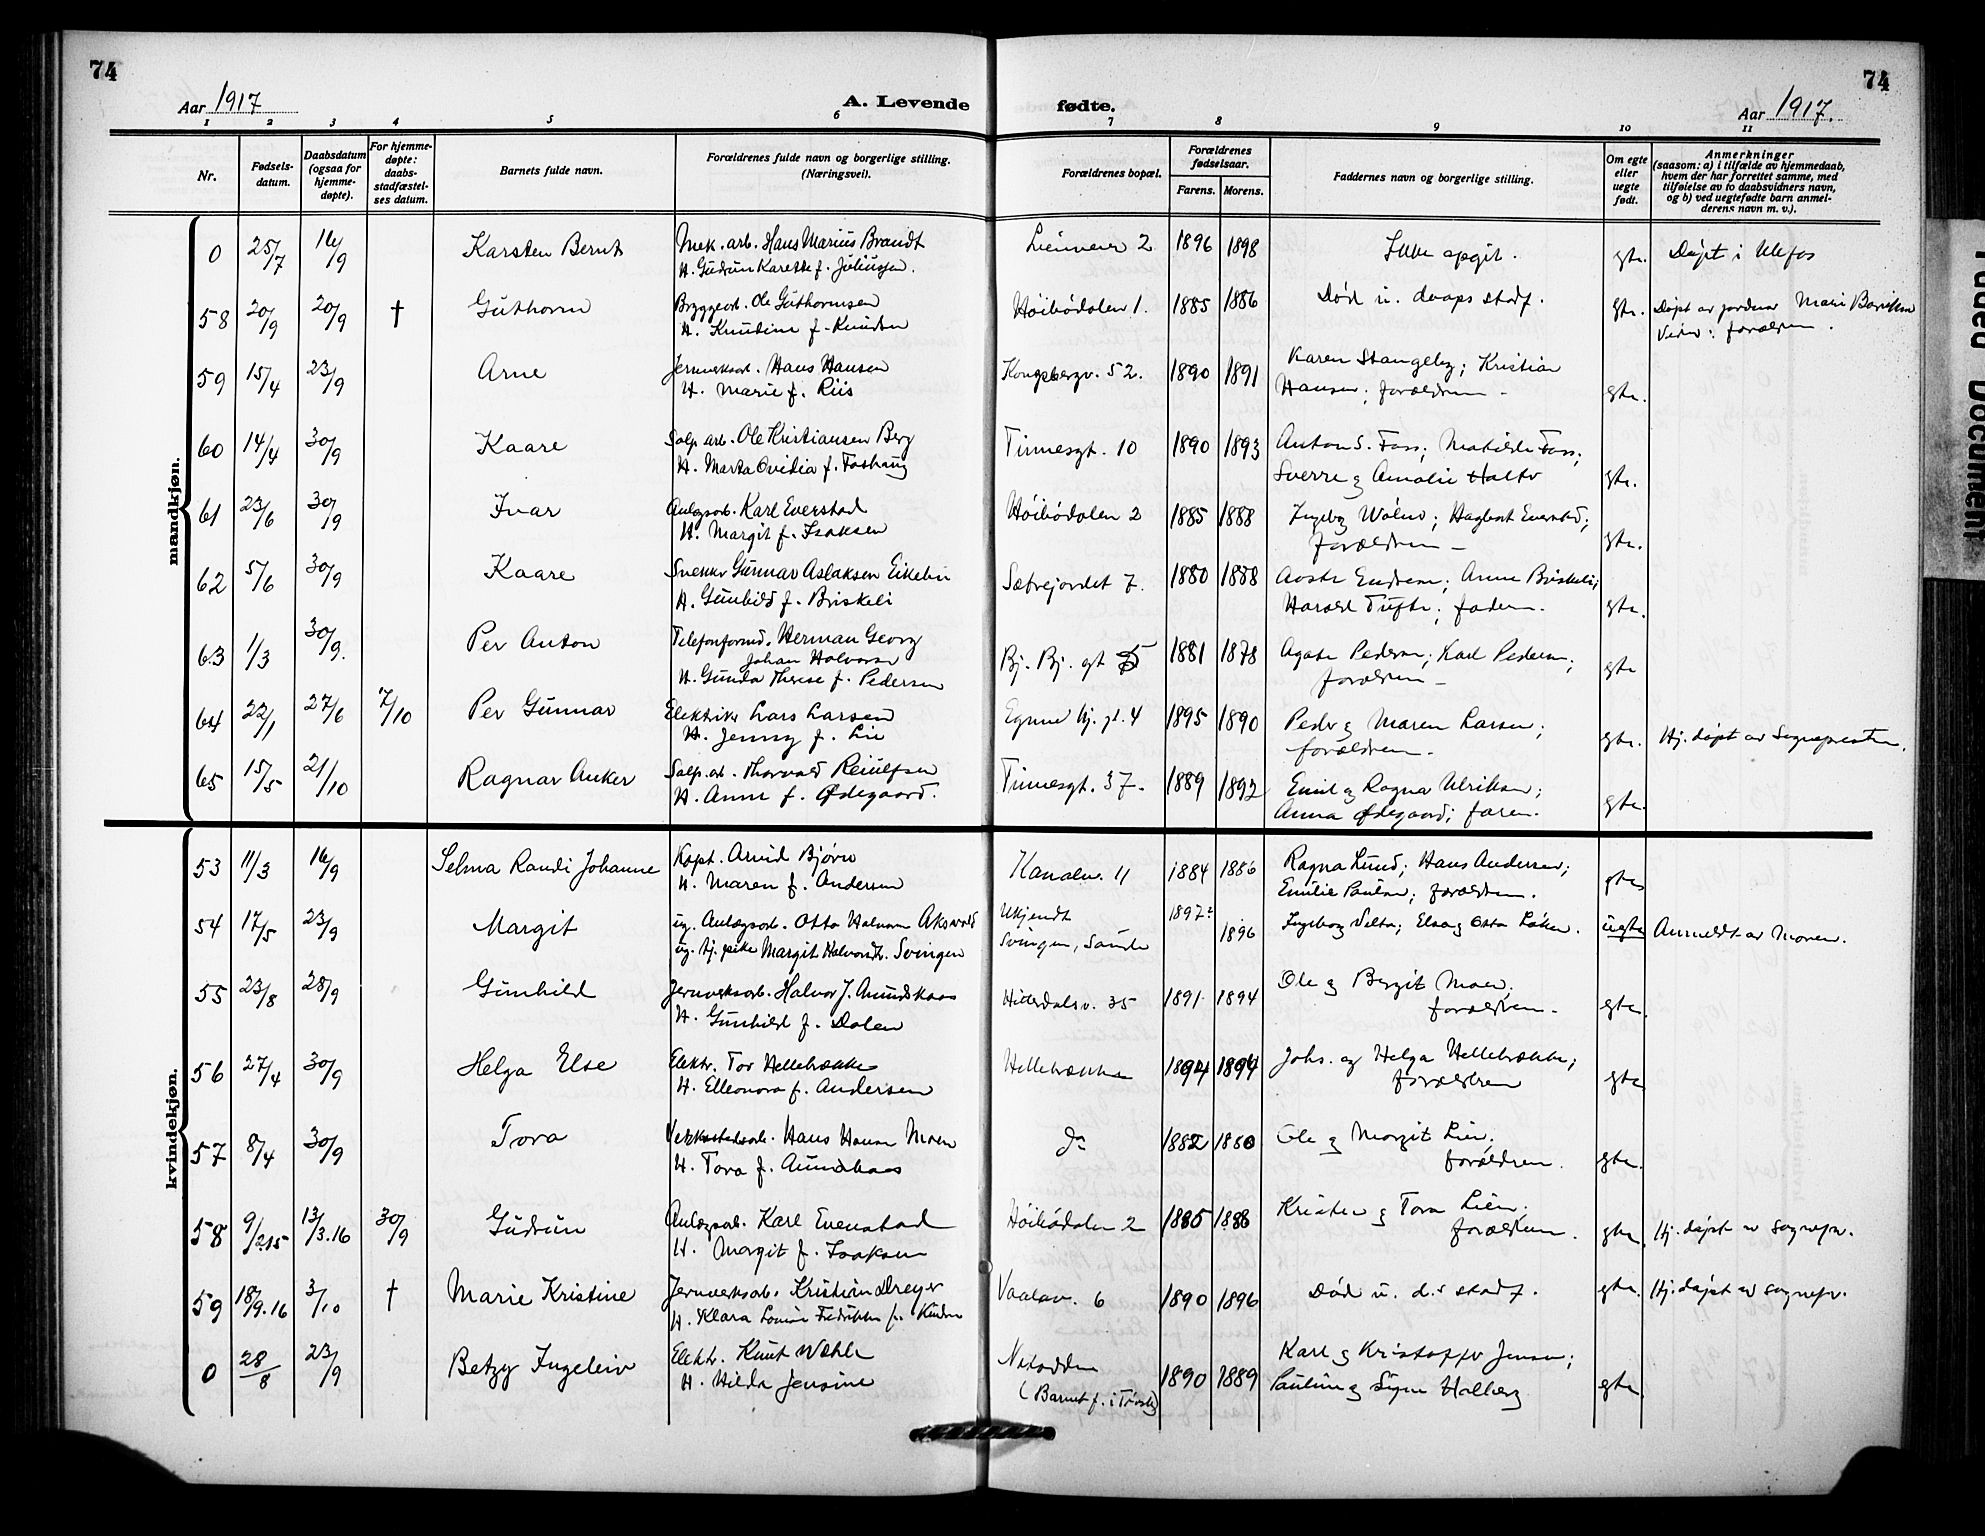 74
74
Aar 1917
A. Levende
fødte.
Aar 1917.
1 2 3 4 5 6 7 8 9 10 11
Nr.
Fødsels-
datum.
Daabsdatum
(ogsaa for
hjemme-
døpte).
For hjemme-
døpte:
daabs-
stadfæstel-
ses datum.
Barnets fulde navn.
Forældrenes fulde navn og borgerlige stilling.
(Næringsvei).
Forældrenes bopæl.
Forældrenes
fødselsaar.
Farens. Morens.
Faddernes navn og borgerlige stilling.
Om egte
eller
uegte
født.
Anmerkninger
(saasom: a) i tilfælde av hjemmedaab,
hvem der har forrettet samme, med
tilføielse av to daabsvidners navn,
og b) ved uegtefødte barn anmel-
derens navn m. v.).
mandkjøn.
0 25/7 16/9 Karsten Bernt Mek. arb. Hans Marius Brandt 2 1896 1898 Ikke opgit. gte. Døpt i Ulefos
H. Gudrun Karette f. Juliussen.
58 20/9 20/9 † Guthorm Bryggearb. Ole Guthormsen Høibødalen 1. 1885 1886 Død u. daaps stadf. gte. Døpt av jordmor Marie
H. Knudine f. Knudsen forældrene.
59 15/4 23/9 Arne Jernverksarb. Hans Hansen Kongsbergv. 52. 1890 1891 Karen Stangeby; Kristian
H. Marie f. Riis Hansen; forældrene – gte.
60 14/4 30/9 Kaare Salp. arb. Ole Kristiansen Berg Tinnesgt. 10 1890 1893 Anton S. Foss; Matilde Foss;
H. Marta Ovidia f. Foshaug Sverre g Amalie gte.
61 23/6 30/9 Ivar Anlægsarb. Karl Evenstad Høibødalen 2 1885 1888 Ingebg Evenstad;
H. Margit f. Isaksen forældrene – gte.
62 5/6 30/9 Kaare Snekker Gunnar Aslaksen Sætrejordet 7. 1880 1888 Anne Briskeli;
H. Gunhild f. Briskeli Harald Tufte; faderen. gte.
63 1/3 30/9. Per Anton Telefonformd. Herman Georg
Johan Halvorsen Bj. Bj. gt 5 1881 1878 Agate Pedersen; Karl Pedersen;
H. Gunda Therese f. Pedersen forældrene – gte
64 22/1 27/6 7/10 Per Gunnar Elektriker Lars Larsen 4 1895 1890 Peder g Maren Larsen;
H. Jenny f. Lie forældrene. gte. Hj. døpt av Sognepresten.
65 15/5 21/10 Ragnar Anker Salp. arb. Thorvald Reiulfsen Tinnesgt. 37. 1889 1892 Emil g Ragna Ulriksen;
H. Anne f. Ødegaard. Anna Ødegaard; faren. gte.
kvindekjøn.
53 11/3 16/9 Selma Randi Johanne Kapt. Arvid Bjørn Kanalv. 11 1884 1886 Ragna Lund; Hans Andersen;
H. Maren f. Andersen Emilie Paulsen; forældrene. gte
54 17/5 23/9 Margit ug. Anlægsarb. Otto Halvorsen Ukjendt 1897? Ingeborg Otto uegte Anmeldt av Moren.
ug. tj. pike Margit Halvorsdtr. Svingen Svingen, Saude 1896
55 23/8 28/9 Gunhild Jernverksarb. Halvor J. Amundskaas Hitterdalsv. 35 1891 1894 Ole g Bergit Moen;
H. Gunhild f. Dalen forældrene. gte.
56 27/4 30/9 Helga Else Elektr. Tor Hellebrække Hellebrække 1894 1894 Johs. og Helga Hellebrække;
H. Elleonora f. Andersen forældrene gte
57 8/4 30/9 Tora Verkstedsarb. Hans Hansen Moen Do 1882 1880 Ole g Margit Lien;
H. Tora f. Amundkaas forældren. gte.
58 9/2 15 13/3.16 30/9 Gudrun Anlægsarb. Karl Evenstad Høibødalen 2 1885 1888 Kristen g Tora Lien;
H. Margit f. Isaksen forældrene. gte. Hj. døpt av sognepr.
59 18/9.16 3/10 † Marie Kristine Jernverksarb. Kristian Dreyer 6 1890 1896 Død u. d.s stadf. gte. Hj. døpt av sognepr.
H. Klara Louise Fredrikke f. Knudsen
0 28/8 23/9 Betzy Ingeleiv Elektr. Knut Wæhle Notodden 1890 1889 Karl g Kristoffer Jensen;
H. Hilda Jensine (Barnet f. i Pauline g Signe Halberg gte.